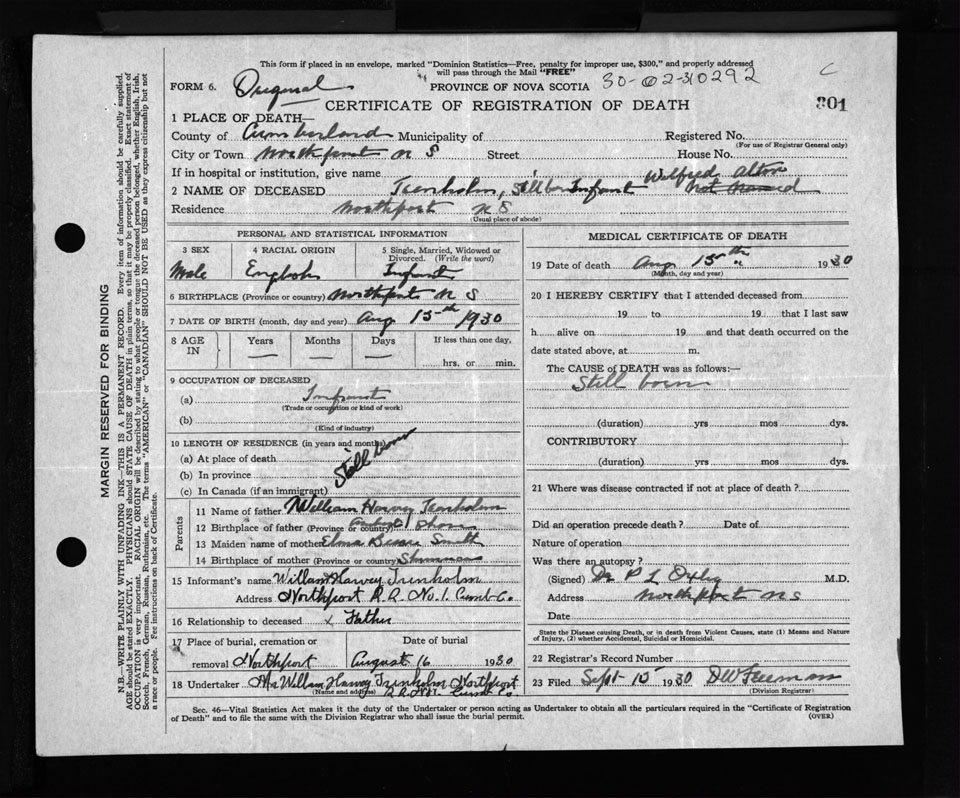 This form if placed in an envelope, marked "Dominion Statistics—Free, penalty for improper use, $300," and properly addressed
will pass through the Mail "FREE"
FORM 6. Original PROVINCE OF NOVA SCOTIA 30-02-310292 C
CERTIFICATE OF REGISTRATION OF DEATH 301
1 PLACE OF DEATH—
County of Cumberland Municipality of Registered No.
(For use of Registrar General only)
City or Town Northport N S Street House No.
If in hospital or institution, give name Wilfred Alton
2 NAME OF DECEASED Trenholm, Stillborn Infant Not Named
Residence Northport N S
(Usual place of abode)
PERSONAL AND STATISTICAL INFORMATION
3 SEX 4 RACIAL ORIGIN 5 Single, Married, Widowed or
Divorced. (Write the word)
Male English Infant
6 BIRTHPLACE (Province or country) Northport N S
7 DATE OF BIRTH (month, day and year) Aug 15th 1930
8 AGE IN Years Months Days If less than one day,
— — — hrs. or min.
9 OCCUPATION OF DECEASED
(a) Infant
(Trade or occupation or kind of work)
(b)
(Kind of industry)
10 LENGTH OF RESIDENCE (in years and months)
(a) At place of death
(b) In province Still born
(c) In Canada (if an immigrant)
Parents
11 Name of father William Harvey Trenholm
12 Birthplace of father (Province or country) Shore
13 Maiden name of mother Elma Smith
14 Birthplace of mother (Province or country)
15 Informant's name William Harvey Trenholm
Address Northport R.R. No. 1. Cumb Co.
16 Relationship to deceased Father
17 Place of burial, cremation or Date of burial
removal Northport August 16 1930
18 Undertaker Mr William Harvey Trenholm Northport
(Name and address) R.R. No 1. Cumb Co.
MEDICAL CERTIFICATE OF DEATH
19 Date of death Aug 15th 1930
(Month, day and year)
20 I HEREBY CERTIFY that I attended deceased from
19 to 19 that I last saw
h alive on 19 and that death occurred on the
date stated above, at m.
The CAUSE of DEATH was as follows:—
Still born
(duration) yrs mos dys.
CONTRIBUTORY
(duration) yrs mos dys.
21 Where was disease contracted if not at place of death?
Did an operation precede death? Date of
Nature of operation
Was there an autopsy?
(Signed) Dr P L Oxley M.D.
Address Northport N S
Date
State the Disease causing Death, or in death from Violent Causes, state (1) Means and Nature
of Injury, (2) whether Accidental, Suicidal or Homicidal.
22 Registrar's Record Number
23 Filed Sept 15 1930 D W Freeman
(Division Registrar)
Sec. 46—Vital Statistics Act makes it the duty of the Undertaker or person acting as Undertaker to obtain all the particulars required in the "Certificate of Registration
of Death" and to file the same with the Division Registrar who shall issue the burial permit. (OVER)
MARGIN RESERVED FOR BINDING
N.B.—WRITE PLAINLY WITH UNFADING INK—THIS IS A PERMANENT RECORD. Every item of information should be carefully supplied.
AGE should be stated EXACTLY. PHYSICIANS should STATE CAUSE OF DEATH in plain terms, so that it may be properly classified. Exact statement of
OCCUPATION is very important. RACIAL ORIGIN will be described by stating to what people or tongue the deceased person belonged, whether English, Irish,
Scotch, French, German, Russian, Ruthenian, etc. The terms "AMERICAN" or "CANADIAN" SHOULD NOT BE USED as they express citizenship but not
a race or people. Fee instructions on back of Certificate.